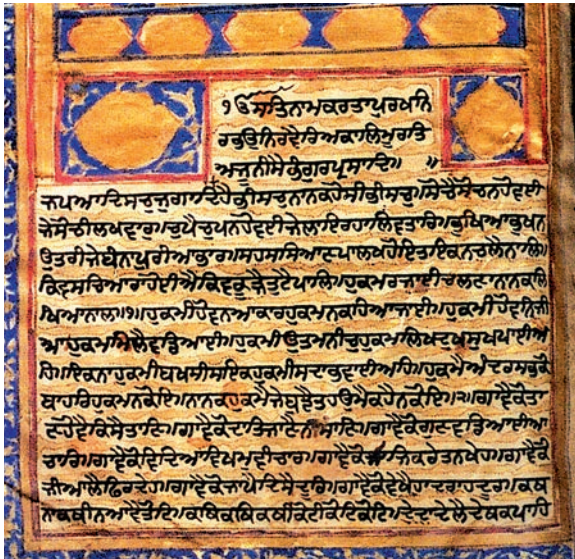 ੧ਓਸਤਿਨਾਮਕਰਤਾਪੁਰਖੁਨਿ
ਰਭਉਨਿਰਵੈਰਿਅਕਾਲਿਮੂਰਤਿ
ਅਜੂਨੀਸੈਭੰਗੁਰਪ੍ਰਸਾਦਿ॥ ॥
ਜਪੁਆਦਿਸਚੁਜੁਗਾਦਿਹੈਭੀਸਚੁਨਾਨਕਹੋਸੀਭੀਸਚੁ॥ਸੋਚੈਸੋਚਨਹੋਵਈ
ਜੇਸੋਚੀਲਖਵਾਰ॥ਚੁਪੈਚੁਪਨਹੋਵਈਜੇਲਾਇਰਹਾਲਿਵਤਾਰਿ॥ਭੁਖਿਆਭੁਖਨ
ਉਤਰੀਜੇਬੰਨਾਪੁਰੀਆਭਾਰ॥ਸਹਸਸਿਆਣਪਾਲਖਹੋਇਤਇਕਨਚਲੈਨਾਲਿ॥
ਕਿਵਸਚਿਆਰਾਹੋਈਐਕਿਵਕੂੜੈਤੁਟੈਪਾਲਿ॥ਹੁਕਮਰਜਾਈਚਲਣਾਨਾਨਕਲਿ
ਖਿਆਨਾਲ॥੧॥ਹੁਕਮੀਹੋਵਨਆਕਾਰਹੁਕਮਨਕਹਿਆਜਾਈ॥ਹੁਕਮੀਹੋਵਨਿਜੀ
ਆਹੁਕਮਮਿਲੈਵਡਿਆਈ॥ਹੁਕਮੀਉਤਮਨੀਚੁਹੁਕਮਲਿਖਦੁਖਸੁਖਪਾਈਅ
ਹਿ॥ਇਕਨਾਹੁਕਮੀਬਖਸੀਸਇਕਹੁਕਮੀਸਦਾਭਵਾਈਅਹਿ॥ਹੁਕਮੈਅੰਦਰਸਭੁਕੋ
ਬਾਹਰਿਹੁਕਮਨਕੋਇ॥ਨਾਨਕਹੁਕਮੈਜੇਬੁਝੈਤਹਉਮੈਕਹੈਨਕੋਇ॥੨॥ਗਾਵੈਕੋਤਾ
ਣੁਹੋਵੈਕਿਸੈਤਾਣੁ॥ਗਾਵੈਕੋਦਾਤਿਜਾਣੈਨੀਸਾਣੁ॥ਗਾਵੈਕੋਗੁਣਵਡਿਆਈਆ
ਚਾਰ॥ਗਾਵੈਕੋਵਿਦਿਆਵਿਖਮੁਵੀਚਾਰ॥ਗਾਵੈਕੋਸਾਜਿਕਰੇਤਨਖੇਹ॥ਗਾਵੈਕੋ
ਜੀਅਲੈਫਿਰਦੇਹ॥ਗਾਵੈਕੋਜਾਪੈਦਿਸੈਦੂਰਿ॥ਗਾਵੈਕੋਵੇਖੈਹਾਦਰਾਹਦੂਰ॥ਕਥ
ਨਾਕਥੀਨਆਵੈਤੋਟਿ॥ਕਥਿਕਥਿਕਥੀਕੋਟੀਕੋਟਿਕੋਟਿ॥ਦੇਦਾਦੇਲੈਦੇਥਕਪਾਹਿ